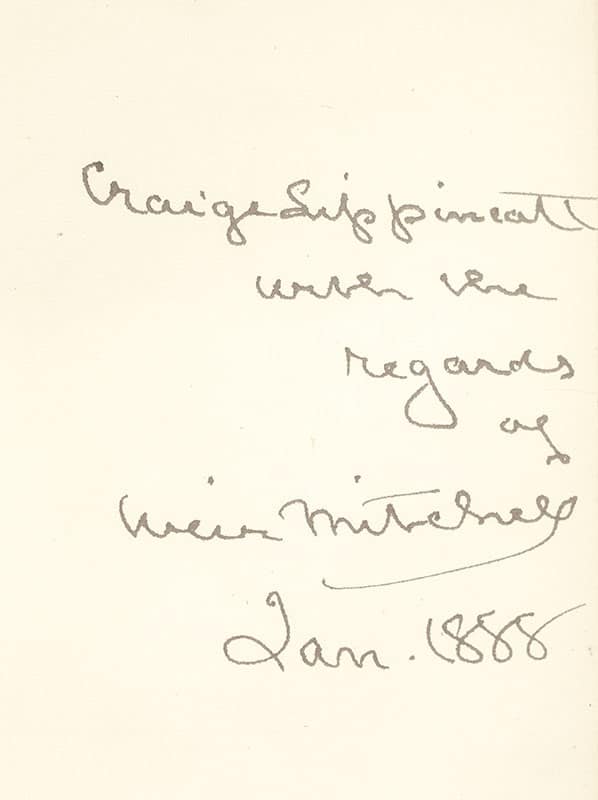 Craige Lippincott
with the
regards
of
Weir Mitchell
Jan. 1888